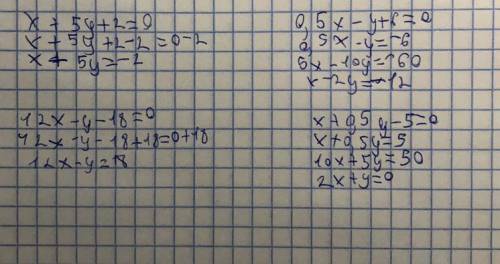 x + 5y + 2 = 0
x + 5y + 2 - 2 = 0 - 2
x + 5y = -2
0,5x - y + 6 = 0
0,5x - y = -6
5x - 10y = -60
x - 2y = -12
12x - y - 18 = 0
12x - y - 18 + 18 = 0 + 18
12x - y = 18
x + 0,5y - 5 = 0
x + 0,5y = 5
10x + 5y = 50
2x + y = 0